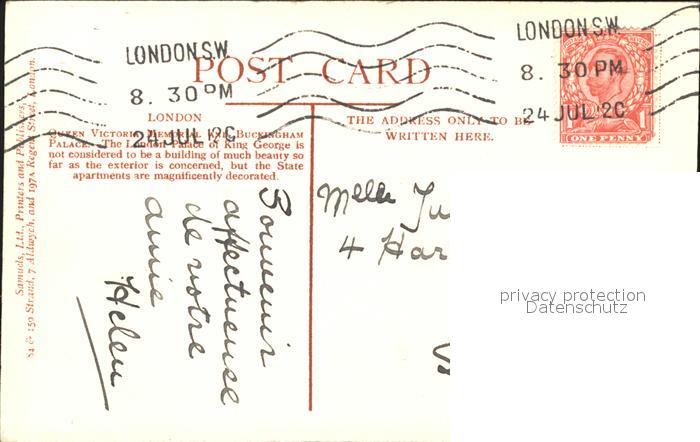 LONDON.S.W.
8. 30 PM
24 JUL '2C
LONDON.S.W.
8. 30 PM
24 JUL '2C
POST CARD
LONDON
QUEEN VICTORIA MEMORIAL AND BUCKINGHAM
PALACE. The London Palace of King George is
not considered to be a building of much beauty so
far as the exterior is concerned, but the State
apartments are magnificently decorated.
THE ADDRESS ONLY TO BE
WRITTEN HERE.
ONE PENNY
Samuels, Ltd., Printers and Publishers,
84 & 150 Strand, 7 Aldwych, and 197A Regent Street, London.
Souvenir
affectueuse
de votre
amie
Helen
Melle Ju
4 Har
privacy protection
Datenschutz